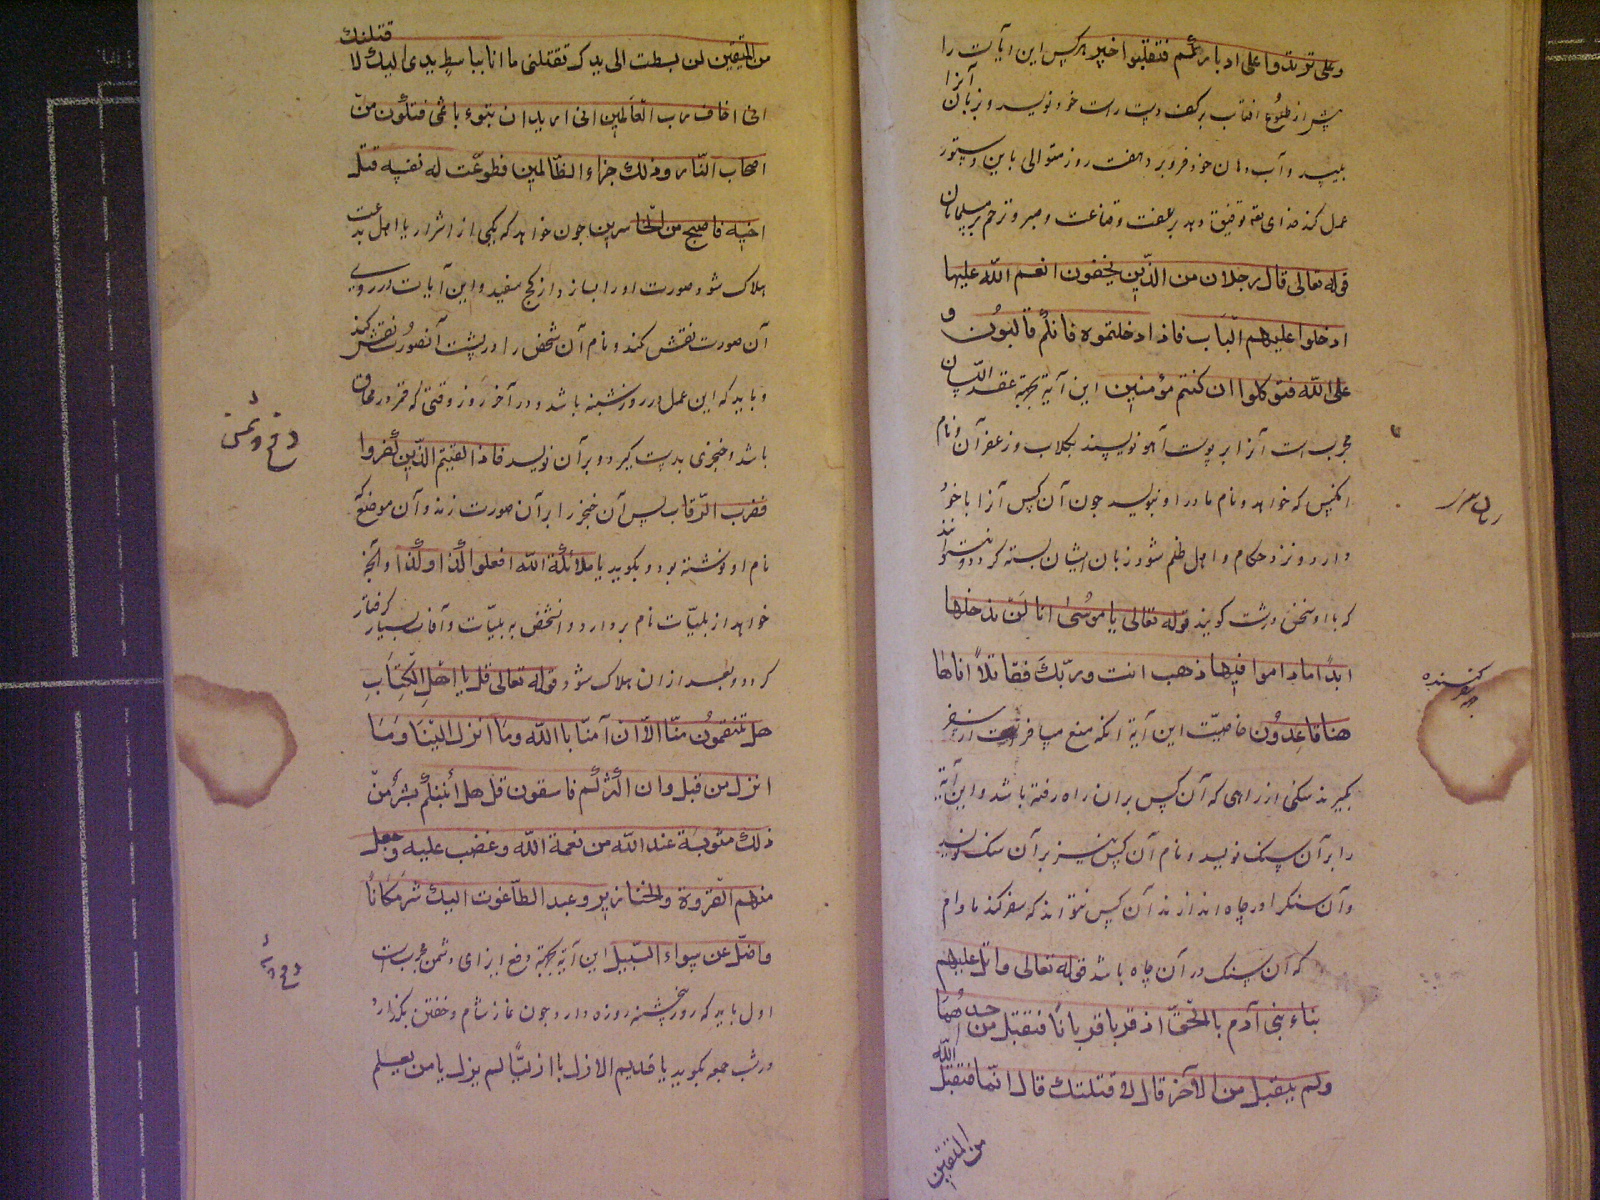 وعلى ترتدوا على ادباركم فتنقلبوا خسر هركس اين آيات را
پيش از طلوع افتاب بر كف دست راست خود نويسد و بزبان آنرا
بليسد و آب دهان خود فرو برد هفت روز متوالى باين دستور
عمل كند خداى تعه توفيق دهد بر عفت و قناعت و صبر و ترحم بر مسلمانان
قوله تعالى قال رجلان من الذين يخافون انعم الله عليها
ادخلوا عليهم الباب فاذا دخلتموه فانكم غالبون و
على الله فتوكلوا ان كنتم مؤمنين اين آية بجهة عقد اللسان
مجربست آنرا بر پوست آهو نويسند بگلاب و زعفران و نام
آنكس كه خواهد و نام مادر او بنويسد چون آن كس آنرا با خود
دارد و نزد حكام و اهل ظلم شود زبان ايشان بسته گردد و نتوانند
كه با او سخن درشت گويند قوله تعالى يا موسى انا لن ندخلها
ابدًا ما داموا فيها فاذهب انت وربّك فقاتلا انا ها
هنا قاعدون خاصيت اين آية آنكه منع مسافرت از سفر
بگيرند سنگى از راهى كه آن كس بران راه رفته باشد و اين آية
را بر آن سنگ نويسد و نام آن كس نيز بر آن سنگ نويسد
و آن سنگ را در چاه اندازند آن كس نتواند كه سفر كند مادام
كه آن سنگ در آن چاه باشد قوله تعالى واتل عليهم
نباء بنى آدم بالحقّ اذ قربا قربانًا فتقبل من احدهما
ولم يتقبل من الآخر قال لاقتلنك قال انما يتقبل الله
من المتقين
زبان بندى
سفر كننده
من المتقين لئن بسطت الى يدك لتقتلنى ما انا بباسط يدى اليك لاقتلنك
انى اخاف رب العالمين انى اريد ان تبوء باثمى فتكون من
اصحاب النار وذلك جزاء الظالمين فطوعت له نفسه قتل
اخيه فاصبح من الخاسرين چون خواهد كه يكى از اشرار يا اهل بدعت
هلاك شود صورت او را بسازد از گچ سفيد و اين آيات در روى
آن صورت نقش كند و نام آن شخص را در پشت آنصورت نقش كند
و بايد كه اين عمل در روز شنبه باشد و در آخر روز وقتى كه قمر در محاق
باشد و خنجرى بدست گيرد و بر آن نويسد فاذا لقيتم الذين كفروا
فضرب الرقاب پس آن خنجر را بر آن صورت زند و آن موضع كه
نام او نوشته بود و بگويد يا ملائكة الله افعلوا كذا وكذا و آنچه
خواهد از بليّات نام بر دارد و آنشخص به بليّات و آفات بسيار گرفتار
گردد و بعد از ان هلاك شود قوله تعالى قل يا اهل الكتاب
هل تنقمون منّا الا ان آمنّا بالله وما انزل الينا وما
انزل من قبل وان اكثركم فاسقون قل هل انبئكم بشر من
ذلك مثوبة عند الله من لعنة الله وغضب عليه وجعل
منهم القردة والخنازير وعبد الطاغوت اليك شر مكانًا
واضل عن سواء السبيل اين آية بجهة دفع ايزاى دشمن مجربست
اول بايد كه روز پنجشنبه روزه دارد و چون نماز شام و خفتن بگذارد
در شب جمعه بگويد يا قديم الازل يا ازليًا لم يزل يا من يعلم
دفع دشمن
دفع دشمن